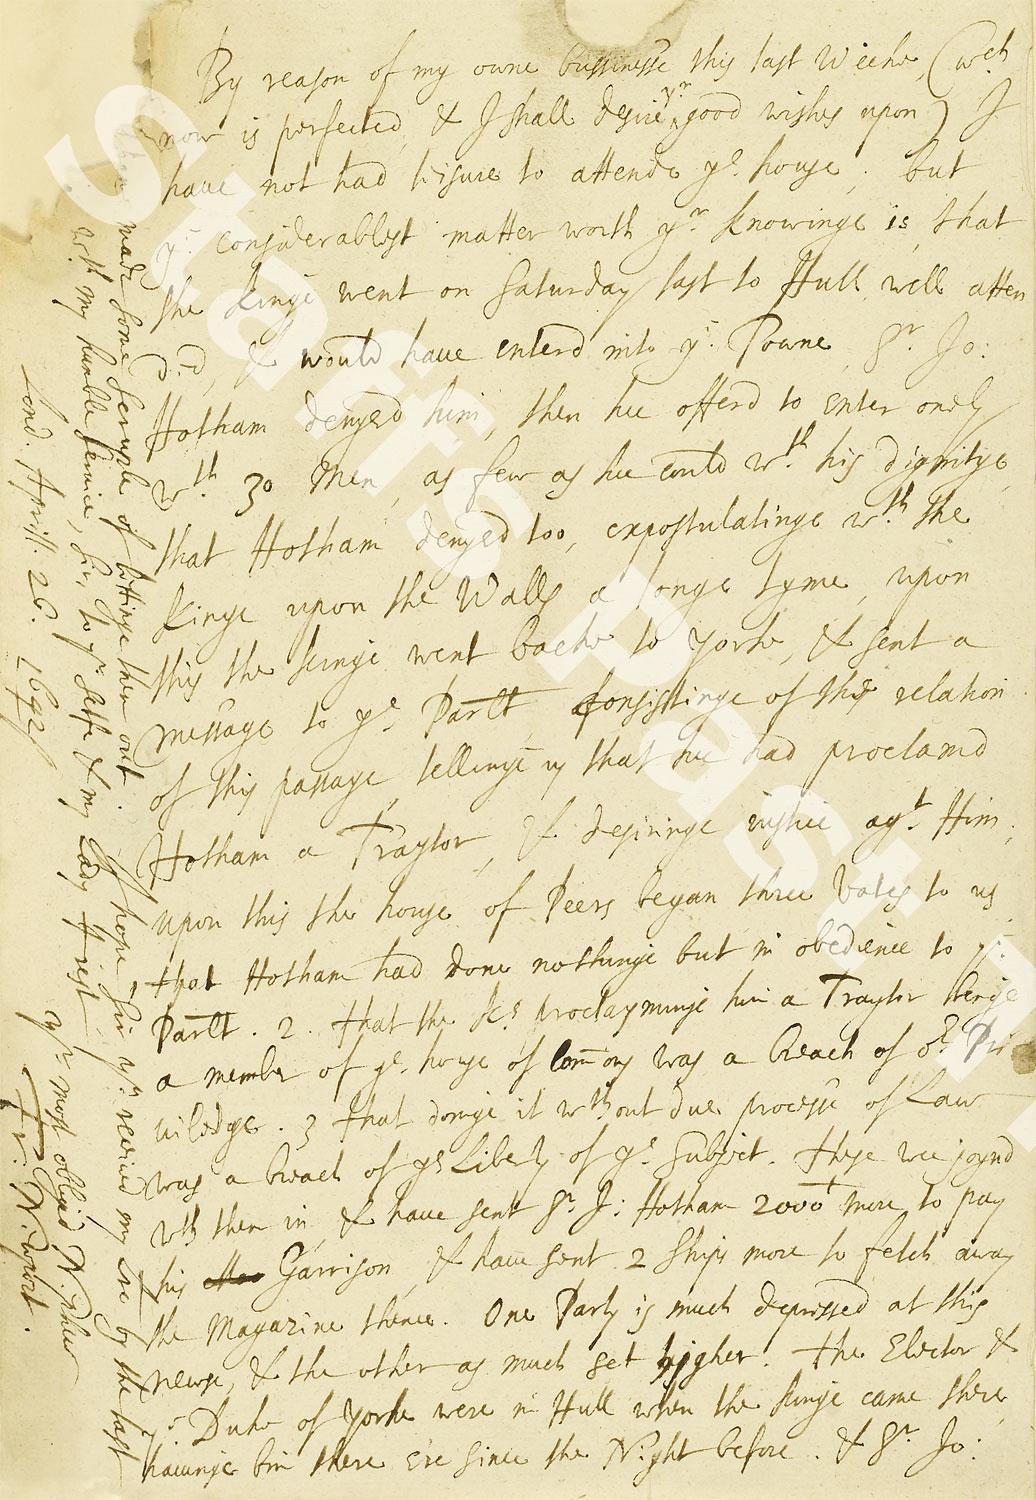 By reason of my owne bussinesse this last Weeke, (wch
now is perfected, & I shall desire yr good wishes upon) I
haue not had leisure to attende ye house, but
ye considerablest matter worth yr knowinge is, that
the kinge went on Saturday last to Hull well atten
ded, & would haue enterd into ye Towne, Sr Jo:
Hotham denyed him, then hee offerd to enter onely
wth 30 Men, as few as hee could wth his dignitye,
that Hotham denyed too, expostulatinge wth the
kinge upon the Walls a longe tyme, upon
this the kinge went backe to Yorke, & sent a
message to ye Parlt consistinge of this relation
of this passage, tellinge us that hee had proclamd
Hotham a Traytor, & desiringe iustice agt Him;
upon this the house of Peers began three Votes to us
1 that Hotham had done nothinge but in obedience to ye
Parlt. 2. that the ks proclayminge him a Traytor beinge
a member of ye house of Commons was a breach of or Pri
uiledge. 3 that doinge it wthout due processe of Law
was a breach of ye Liberty of ye Subject. These wee joynd
wth them in, & haue sent Sr J: Hotham 2000t more to pay
his Garrison, & haue sent 2 Ships more to fetch away
the Magazine thence. One Party is much depressed at this
newse, & the other as much set higher. the Elector &
ye Duke of Yorke were in Hull when the kinge came there,
hauinge bin there ere since the Night before. & Sr Jo:
made some scruple of lettinge them out. I hope Sir yu receiued my lre by the last
wth my humble seruice, Sir, to yr selfe & my Lady I rest
yr most obliged Nephew
Lond. Aprill. 26. 1642
Fr: Newport.
Staffs Past